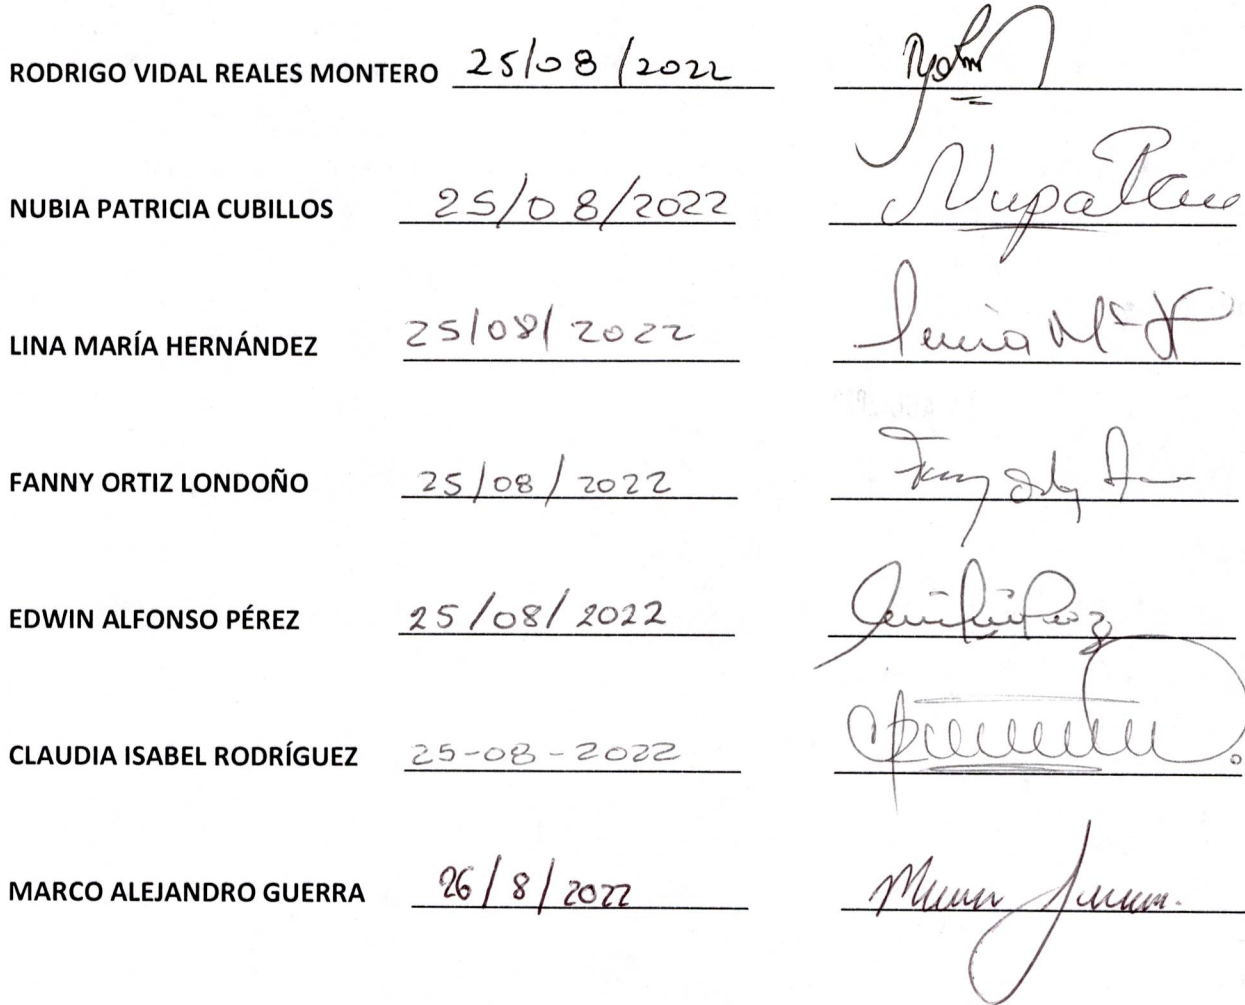 RODRIGO VIDAL REALES MONTERO 25/08/2022
NUBIA PATRICIA CUBILLOS 25/08/2022 Nupa
LINA MARÍA HERNÁNDEZ 25/08/2022
FANNY ORTIZ LONDOÑO 25/08/2022
EDWIN ALFONSO PÉREZ 25/08/2022
CLAUDIA ISABEL RODRÍGUEZ 25-08-2022
MARCO ALEJANDRO GUERRA 26/8/2022